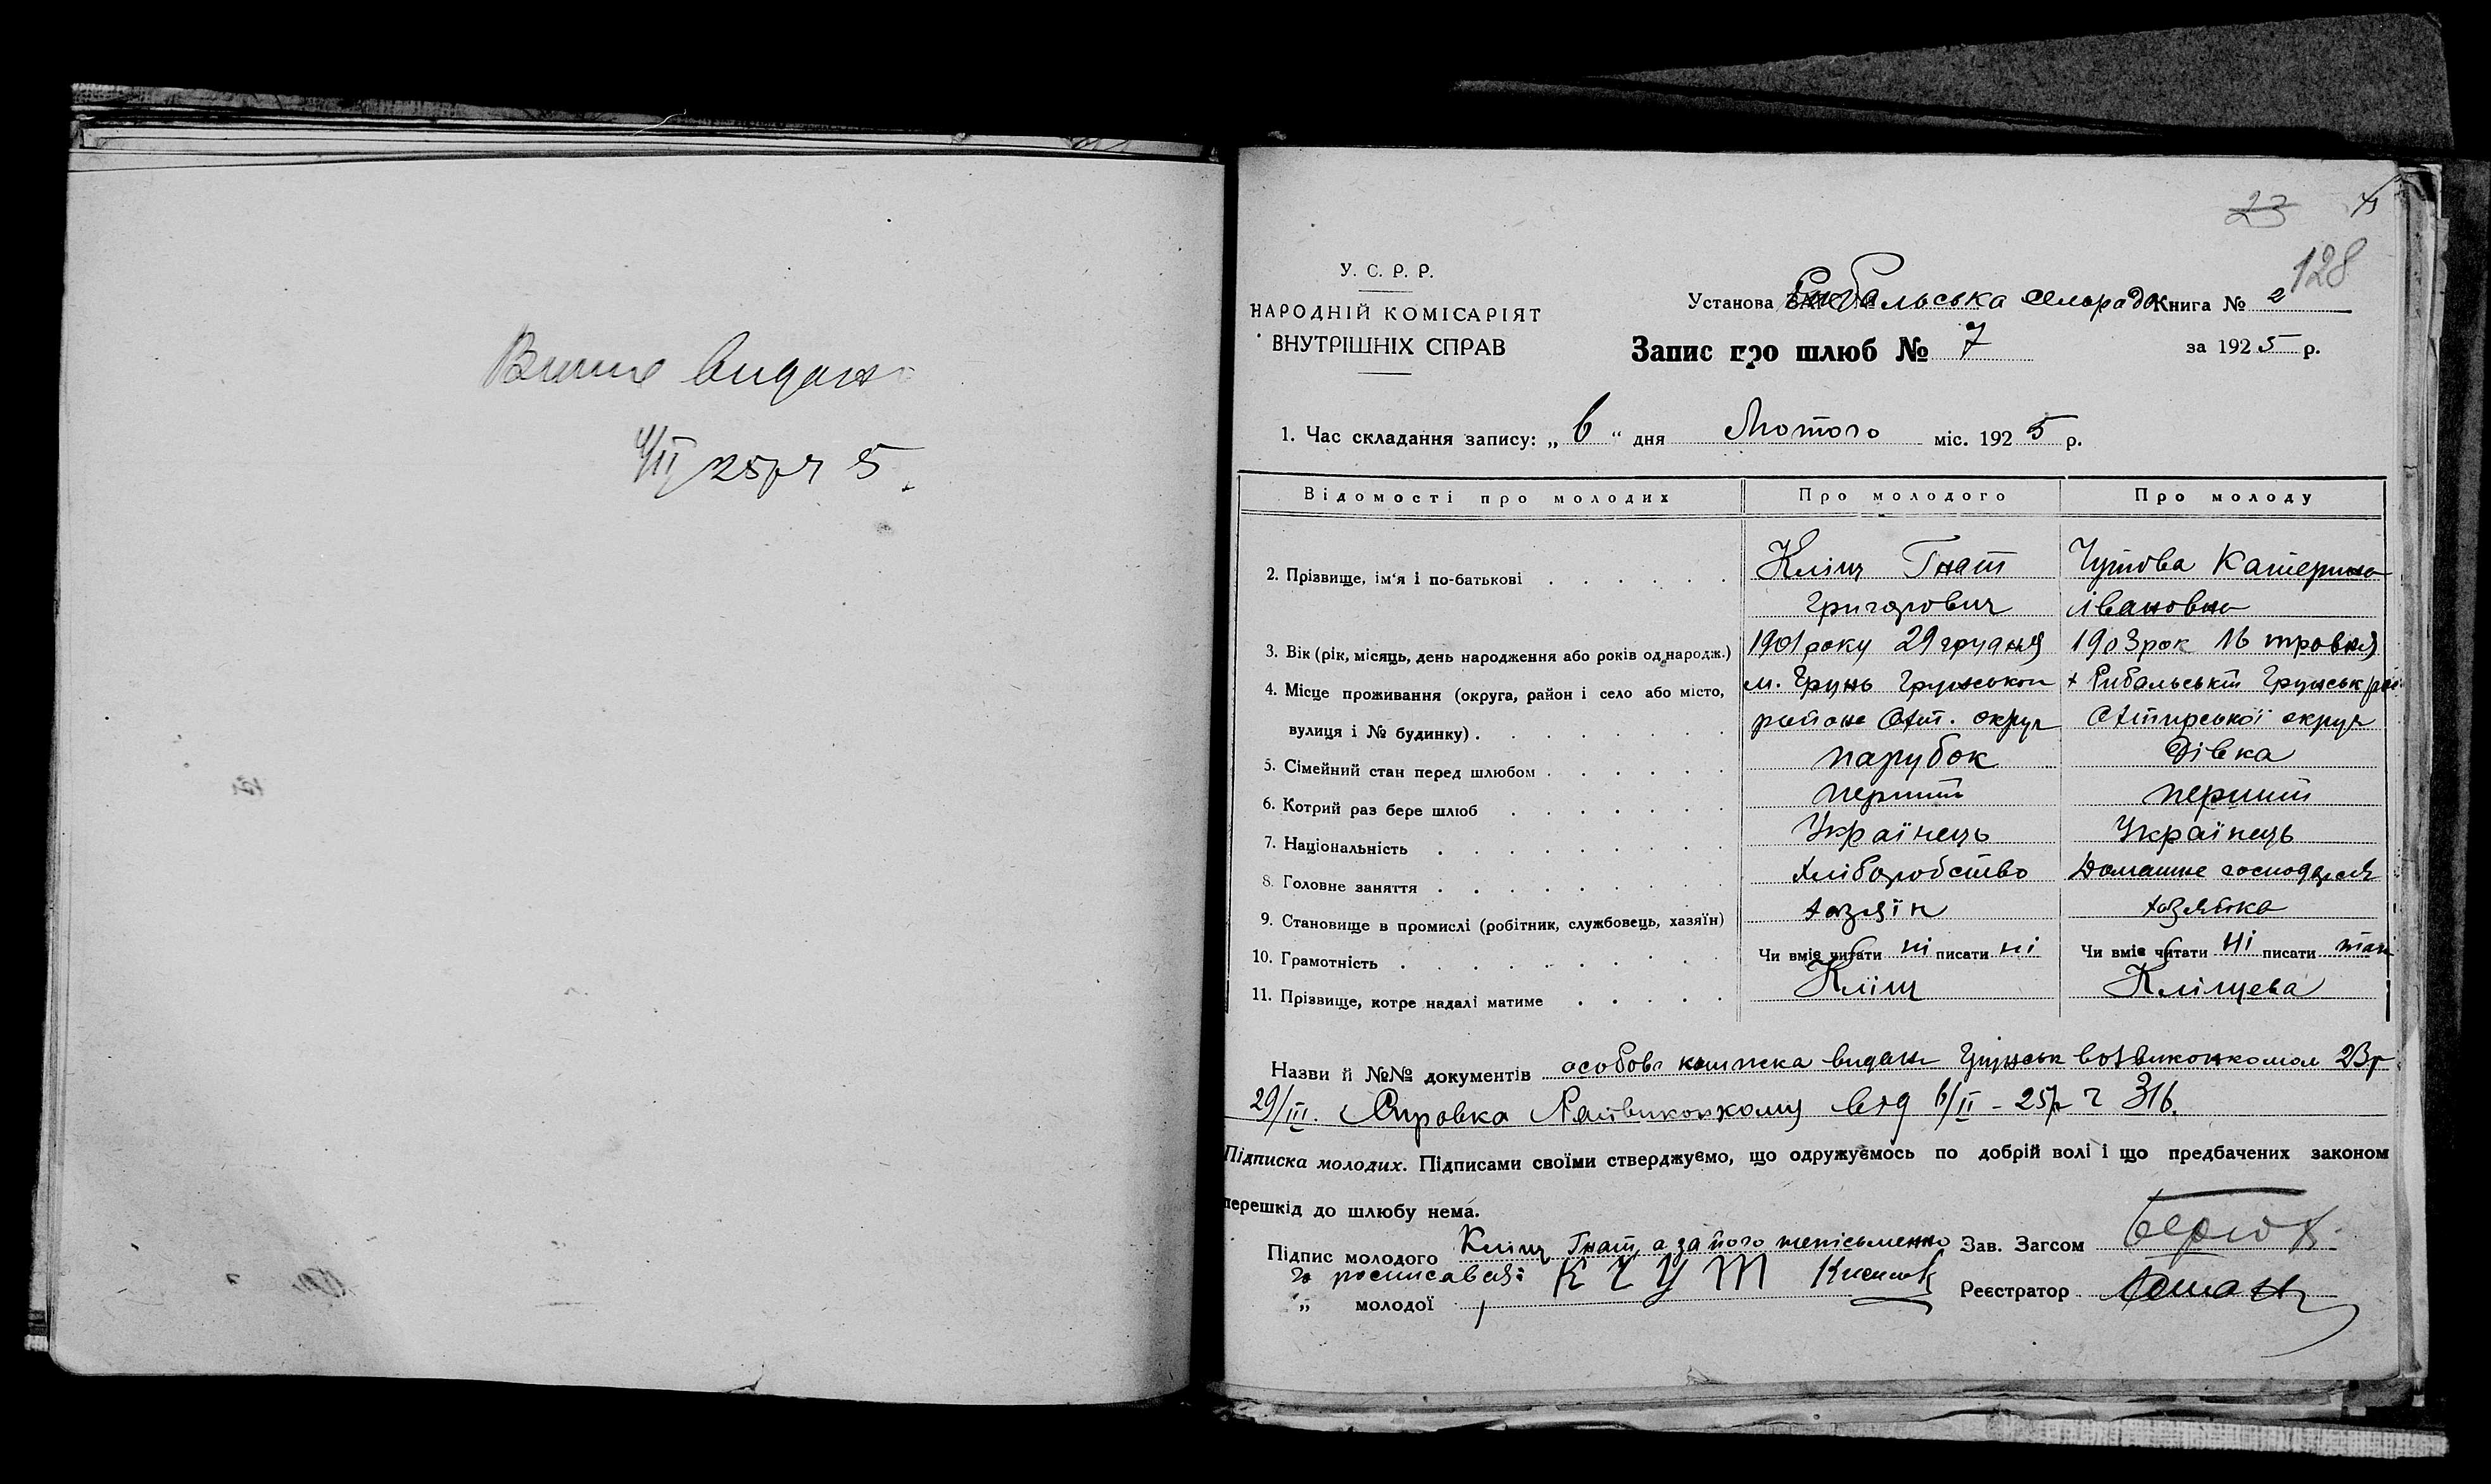 видано
25 р ч 5
23
128
У. С. Р. Р.
НАРОДНІЙ КОМІСАРІЯТ
ВНУТРІШНІХ СПРАВ
Установа Рибальська сельрада Книга № 2
Запис про шлюб № 7 за 1925 р.
1. Час складання запису: „6“ дня Лютого міс. 1925 р.
Відомості про молодих Про молодого Про молоду
2. Прізвище, ім‘я і по-батькові Кліщ Гнат Чутова Катерина
Григорович Івановна
3. Вік (рік, місяць, день народження або років од народж.) 1901 року 29 грудня 1903 рок 16 травня
4. Місце проживання (округа, район і село або місто, м. Грунь Грунської х Рибальській Грунськ рай
вулиця і № будинку) района Охт. округи Охтирської округи
5. Сімейний стан перед шлюбом парубок дівка
6. Котрий раз бере шлюб перший перший
7. Національність Українець Українець
8. Головне заняття хліборобство Домашне господарся
9. Становище в промислі (робітник, службовець, хазяїн) хазяїн хазяйка
10. Грамотність Чи вміє читати ні писати ні Чи вміє читати ні писати
11. Прізвище, котре надалі матиме Кліщ Кліщева
Назви й №№ документів особова книжка видана Грунськ волвиконкомом 23 р
29/III. Справка Райвиконкому від 6/II - 25 р ч 316.
Підписка молодих. Підписами своїми стверджуємо, що одружуємось по добрій волі і що предбачених законом
перешкід до шлюбу нема.
Підпис молодого Кліщ Гнат, а за його непісьменно Зав. Загсом
го росписався: Реєстратор
„ молодої